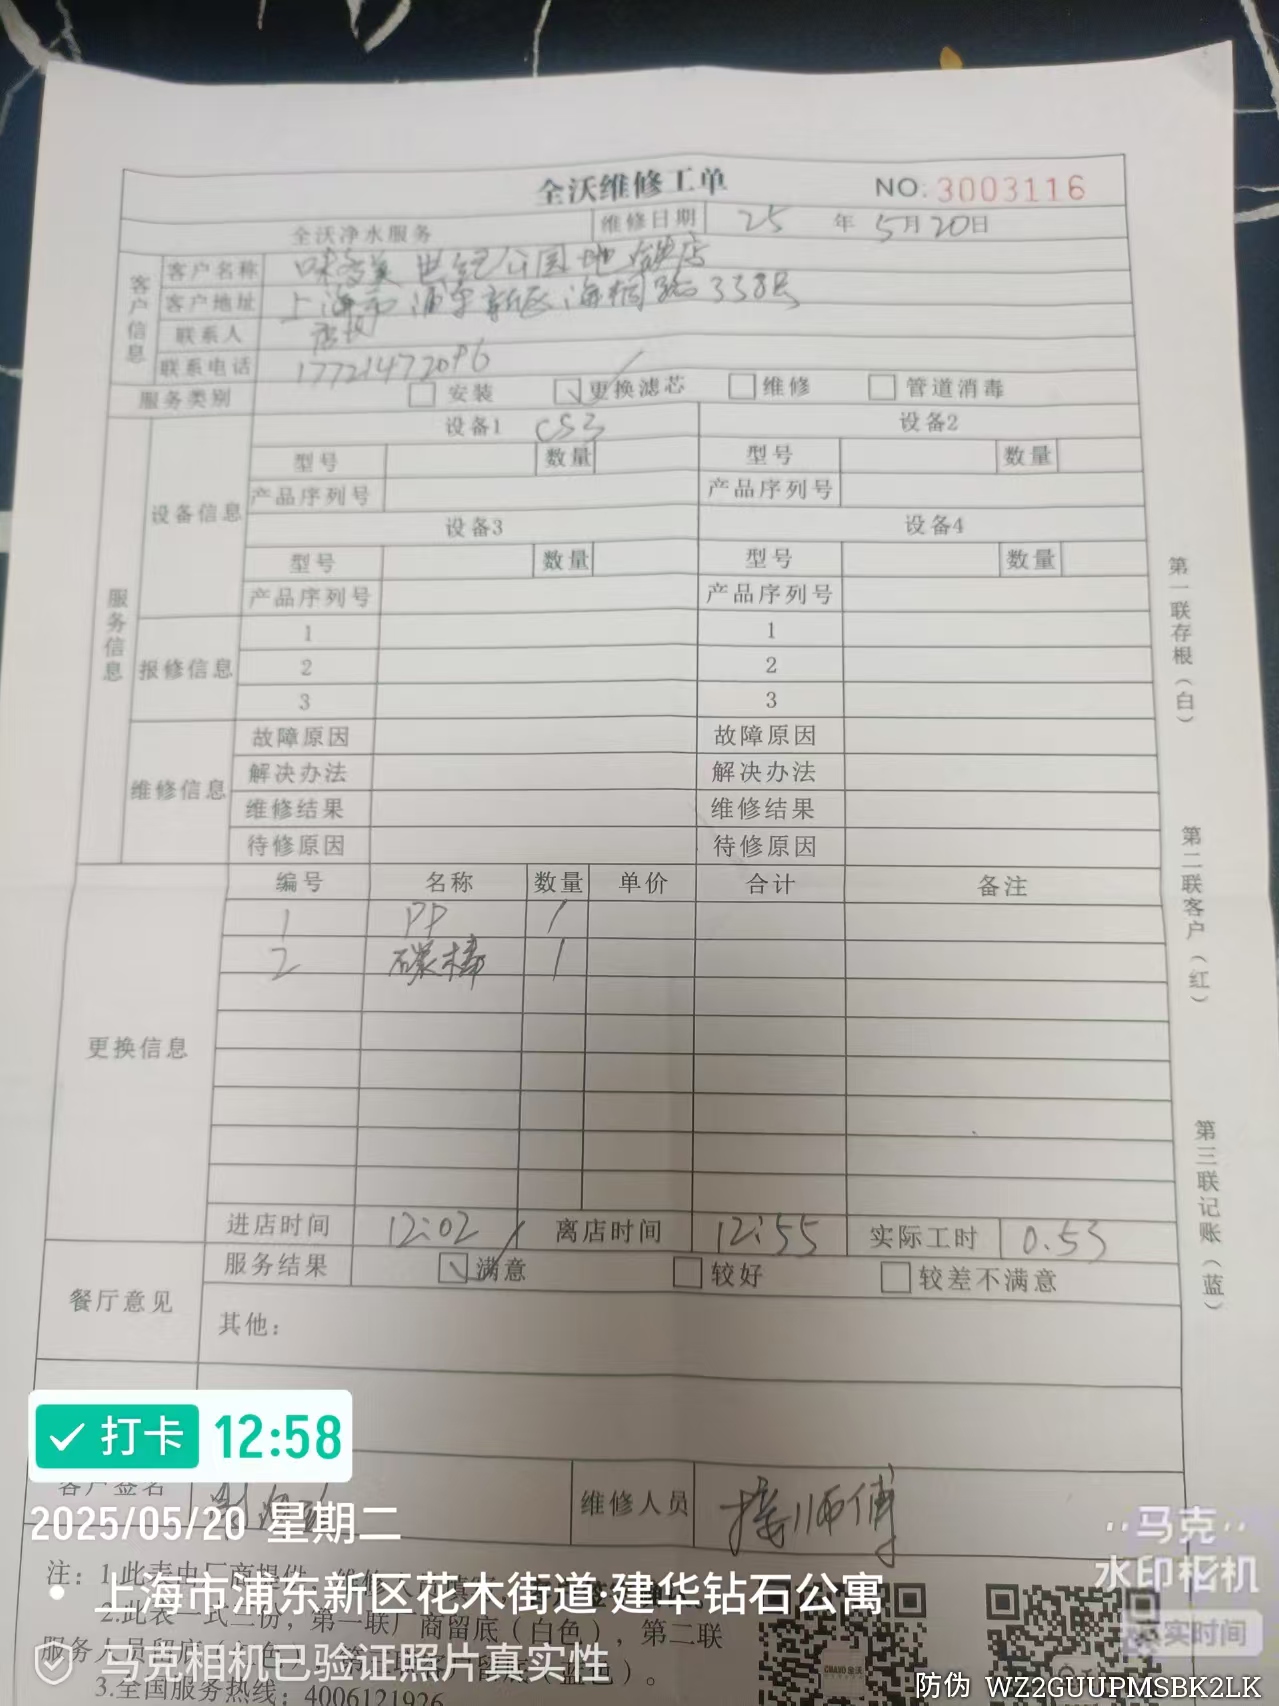 全沃维修工单 NO: 3003116
全沃净水服务 维修日期 25 年 5月20日
客户信息
客户名称 味多美 世纪公园地铁店
客户地址 上海市浦东新区海桐路338号
联系人 店长
联系电话 17721472096
服务类别 安装 更换滤芯 维修 管道消毒
服务信息
设备信息
设备1 CS3 设备2
型号 数量 型号 数量
产品序列号 产品序列号
设备3 设备4
型号 数量 型号 数量
产品序列号 产品序列号
报修信息
1 1
2 2
3 3
维修信息
故障原因 故障原因
解决办法 解决办法
维修结果 维修结果
待修原因 待修原因
更换信息
编号 名称 数量 单价 合计 备注
1 PP 1
2 碳棒 1
进店时间 12:02 离店时间 12:55 实际工时 0.53
餐厅意见
服务结果 满意 较好 较差不满意
其他:
客户签名 维修人员 接师傅
注: 1.此表由厂商提供,维修人
2.此表一式三份,第一联厂商留底(白色),第二联
服务人员留底
3.全国服务热线: 4006121926
第一联存根(白)
第二联客户(红)
第三联记账(蓝)
打卡 12:58
2025/05/20 星期二
上海市浦东新区花木街道·建华钻石公寓
马克相机已验证照片真实性
马克
水印相机
实时间
防伪 WZ2GUUPMSBK2LK